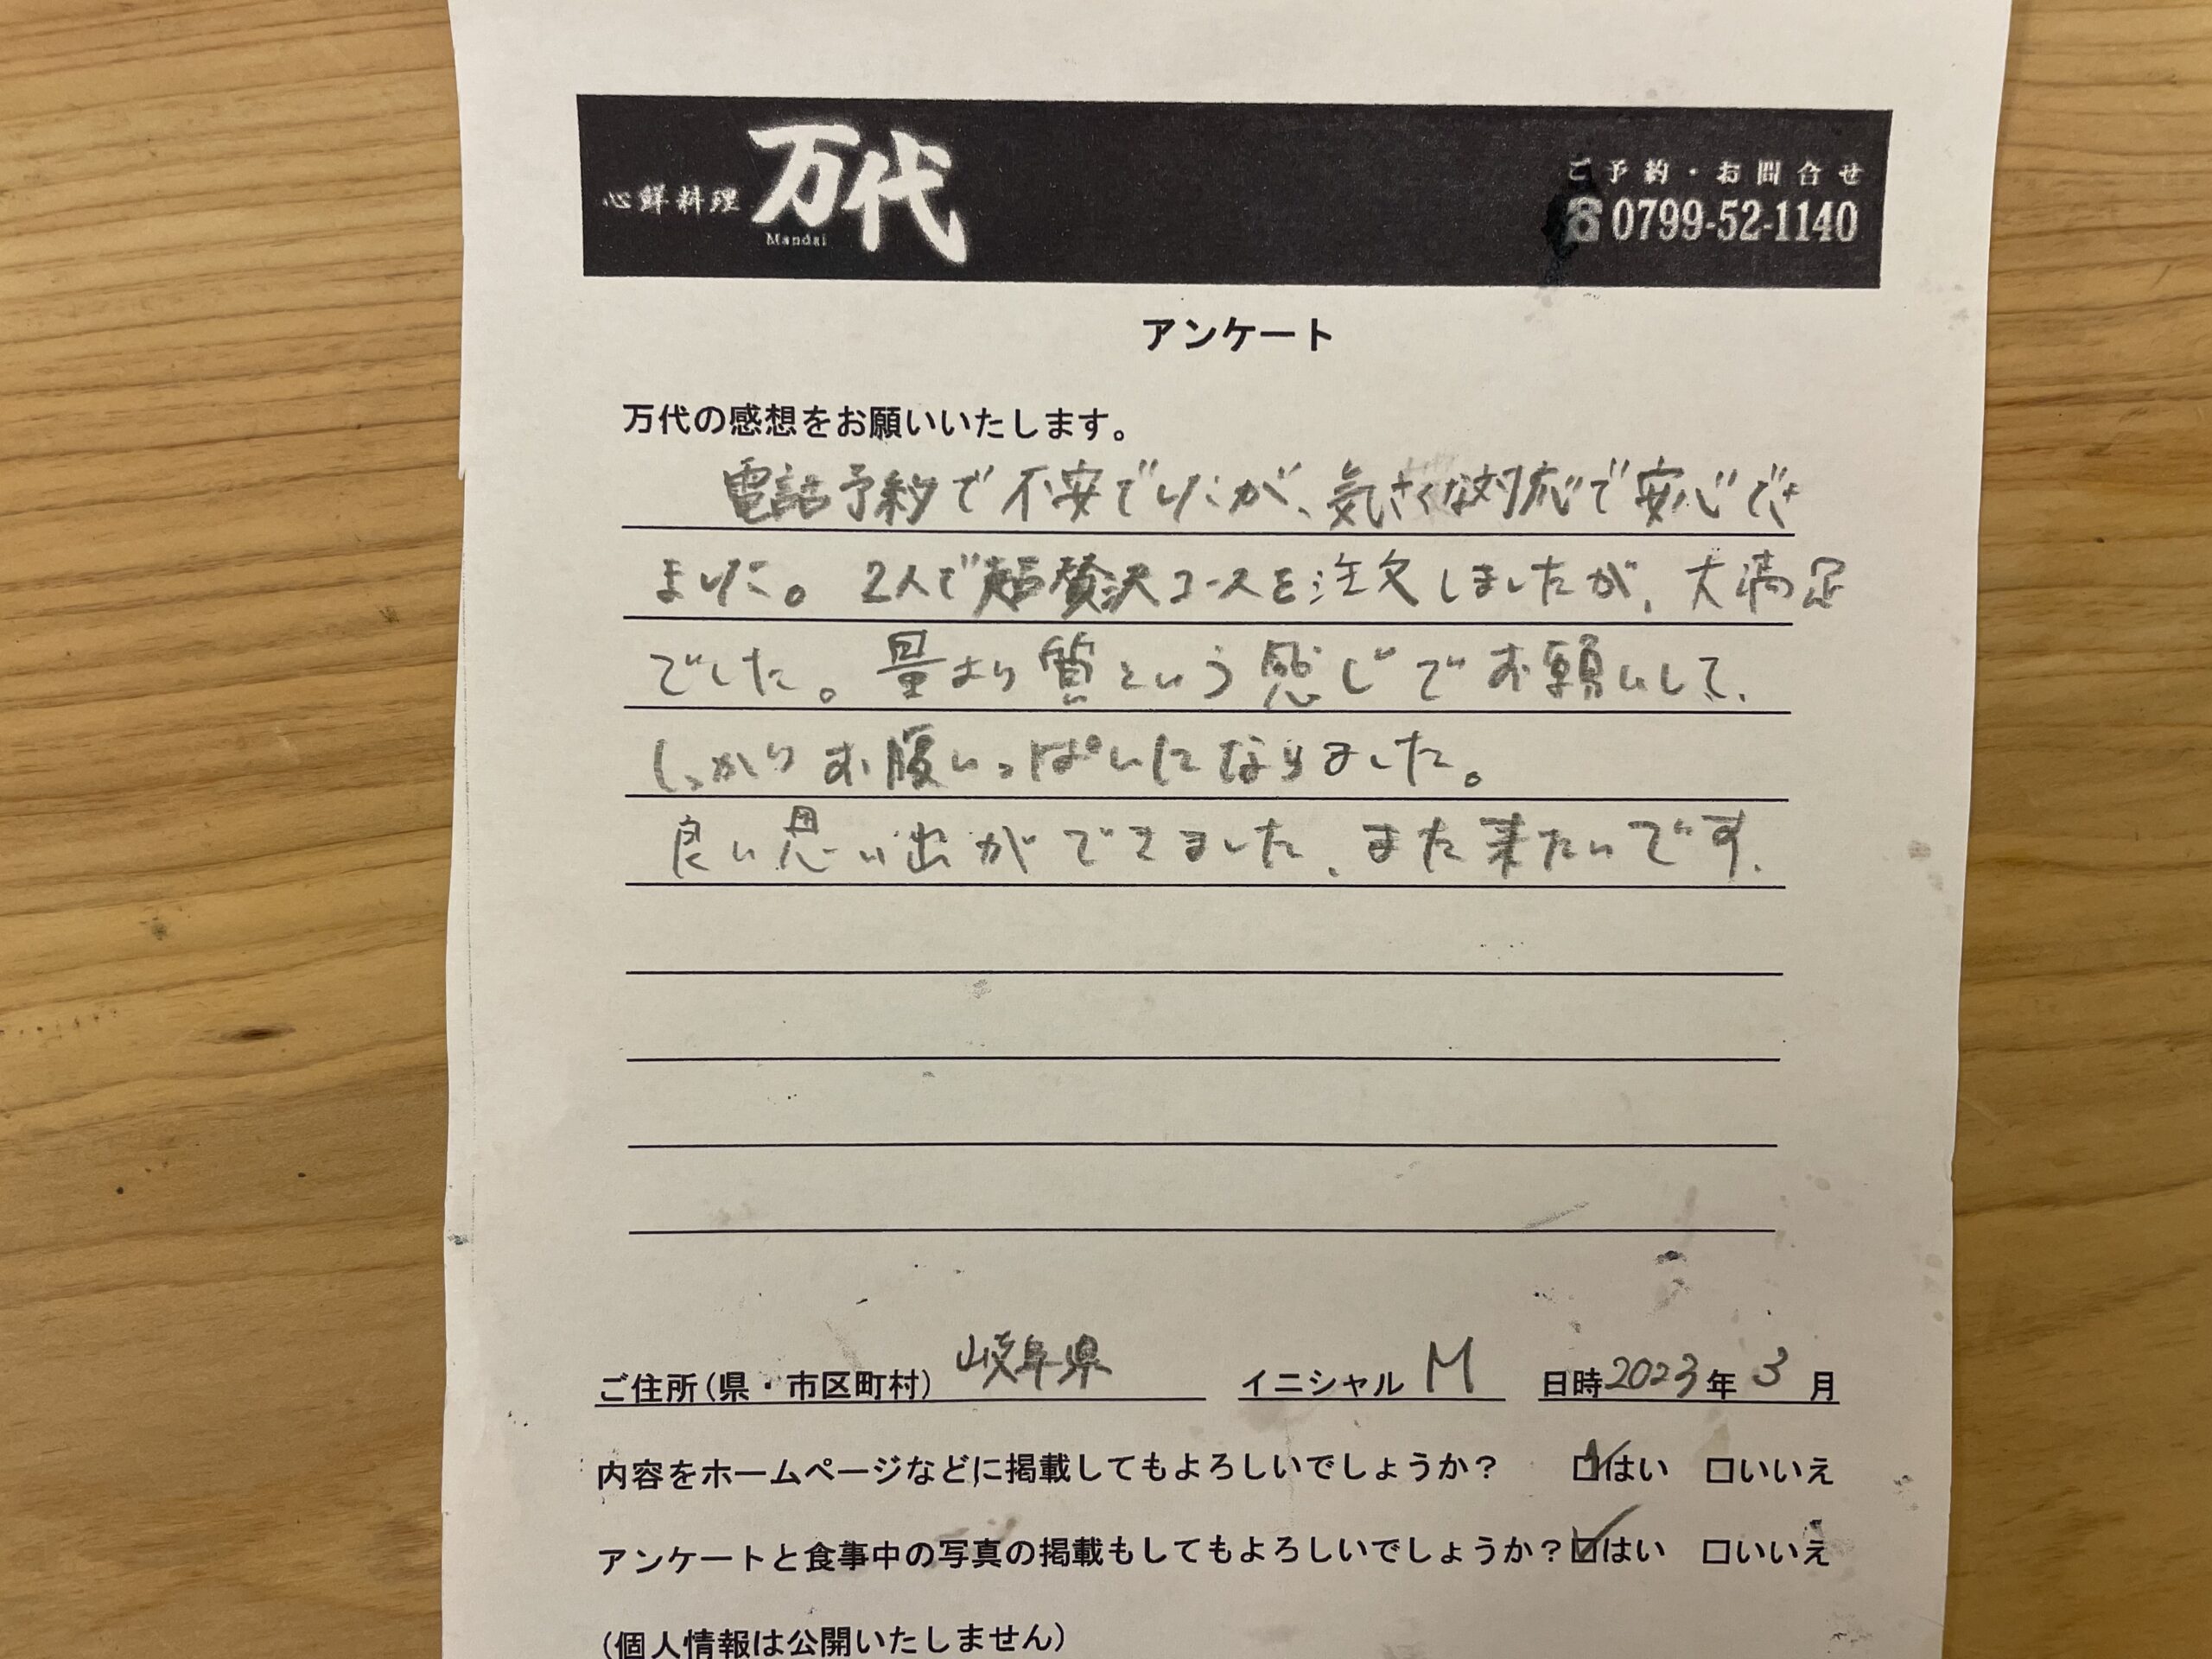 心鮮料理 万代
Mandai
ご予約・お問合せ
☎0799-52-1140
アンケート
万代の感想をお願いいたします。
電話予約で不安でしたが、気さくな対応で安心でき
ました。2人で超贅沢コースを注文しましたが、大満足
でした。量より質という感じでお願いして、
しっかりお腹いっぱいになりました。
良い思い出ができました、また来たいです.
ご住所(県・市区町村) 岐阜県 イニシャル M 日時2023年3月
内容をホームページなどに掲載してもよろしいでしょうか? ☑はい □いいえ
アンケートと食事中の写真の掲載もしてもよろしいでしょうか?☑はい □いいえ
(個人情報は公開いたしません)